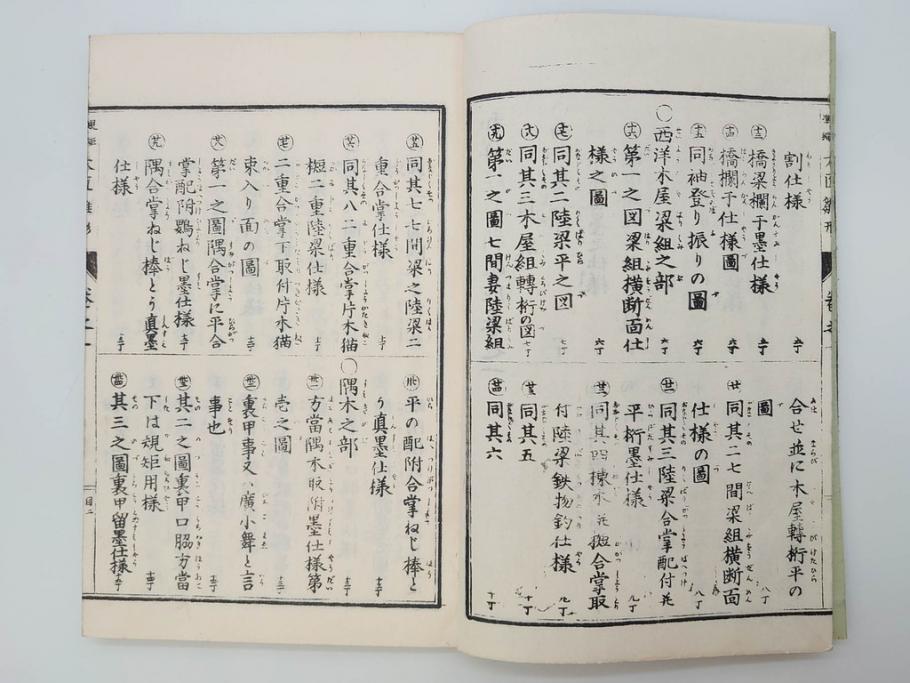 割仕様 五丁
橋梁欄干墨仕様 五丁
橋欄干仕様圖 六丁
同袖登り振りの圖 六丁
〇西洋木屋梁組之部 六丁
第一之図梁組横断面仕
様之圖 六丁
同其二陸梁平之図 七丁
同其三木屋組轉桁の図 七丁
第一之圖七間妻陸梁組
合せ並に木屋轉桁平の
圖 八丁
同其二七間梁組横断面
仕様の圖 八丁
同其三陸梁合掌配付並
平桁墨仕様 九丁
同其四棟木並梶合掌取
付陸梁鉄物釣仕様 九丁
同其五 十丁
同其六 十丁
同其七七間梁之陸梁二
重合掌仕様
同其八二重合掌片木猫
梶二重陸梁仕様
二重合掌下取付片木猫
束入り面の圖
第一之圖隅合掌に平合
掌配附鶍ねじ墨仕様
隅合掌ねじ棒とう真墨
仕様
平の配附合掌ねじ棒と
う真墨仕様
〇隅木之部
方當隅木取附墨仕様第
壱之圖
裏甲事又ハ廣小舞と言
事也
其二之圖裏甲口脇方當
下は規矩用様
其三之圖裏甲留墨仕様